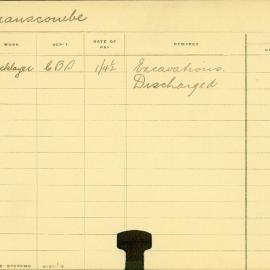 ranscombe
WORK DEP'T DATE OF PAY REMARKS
cklayer C.B.D 1/4½ Excavations.
Discharged
SYSTEMS